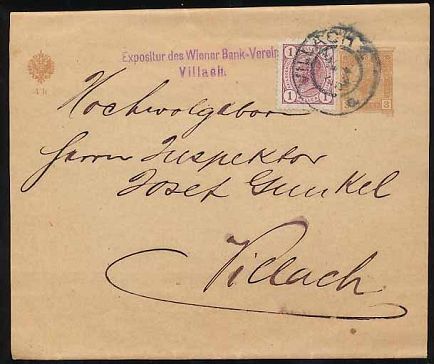 Expositur des Wiener Bank-Verein
Villach.
4 h
1 1
3
VILLACH
Hochwolgeboren
Herrn Inspektor
Josef Gunkel
Villach